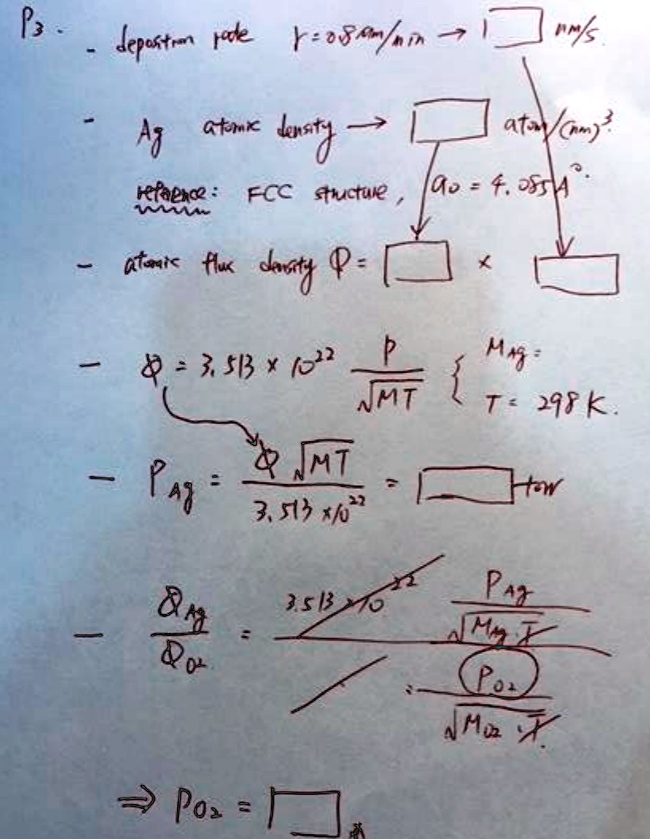 P3.
- deposition rate r = 0.8 μm/min → □ nm/s.
- Ag atomic density → □ atom/(nm)³.
reference: FCC structure, a0 = 4.085 A°.
- atomic flux density Φ = □ × □
- Φ = 3.513 × 10²² P/√MT { MAg =
T = 298 K.
- PAg = Φ √MT / 3.513 × 10²² = □ torr
- ΦAg/ΦO2 = 3.513 × 10²² PAg/√MAg·T
PO2/√MO2·T
⇒ PO2 = □